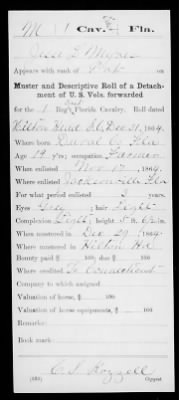 M | 1 | Cav. | Fla.
Jesse L. Myers
Appears with rank of Pvt. on
Muster and Descriptive Roll of a Detach-
ment of U. S. Vols. forwarded
for the 1 Reg't East Florida Cavalry. Roll dated
Hilton Head S.C. Dec 31, 1864.
Where born Duval Co Fla
Age 19 y'rs; occupation Farmer
When enlisted Nov 17, 1864.
Where enlisted Jacksonville Fla
For what period enlisted 3 years.
Eyes Grey; hair Light
Complexion Light; height 5 ft. in.
When mustered in Dec 29, 1864.
Where mustered in Hilton Hd
Bounty paid $ 100; due $ 100
Where credited
Company to which assigned
Valuation of horse, $ 100
Valuation of horse equipments, $ 100
Remarks:
Book mark:
Copyist.